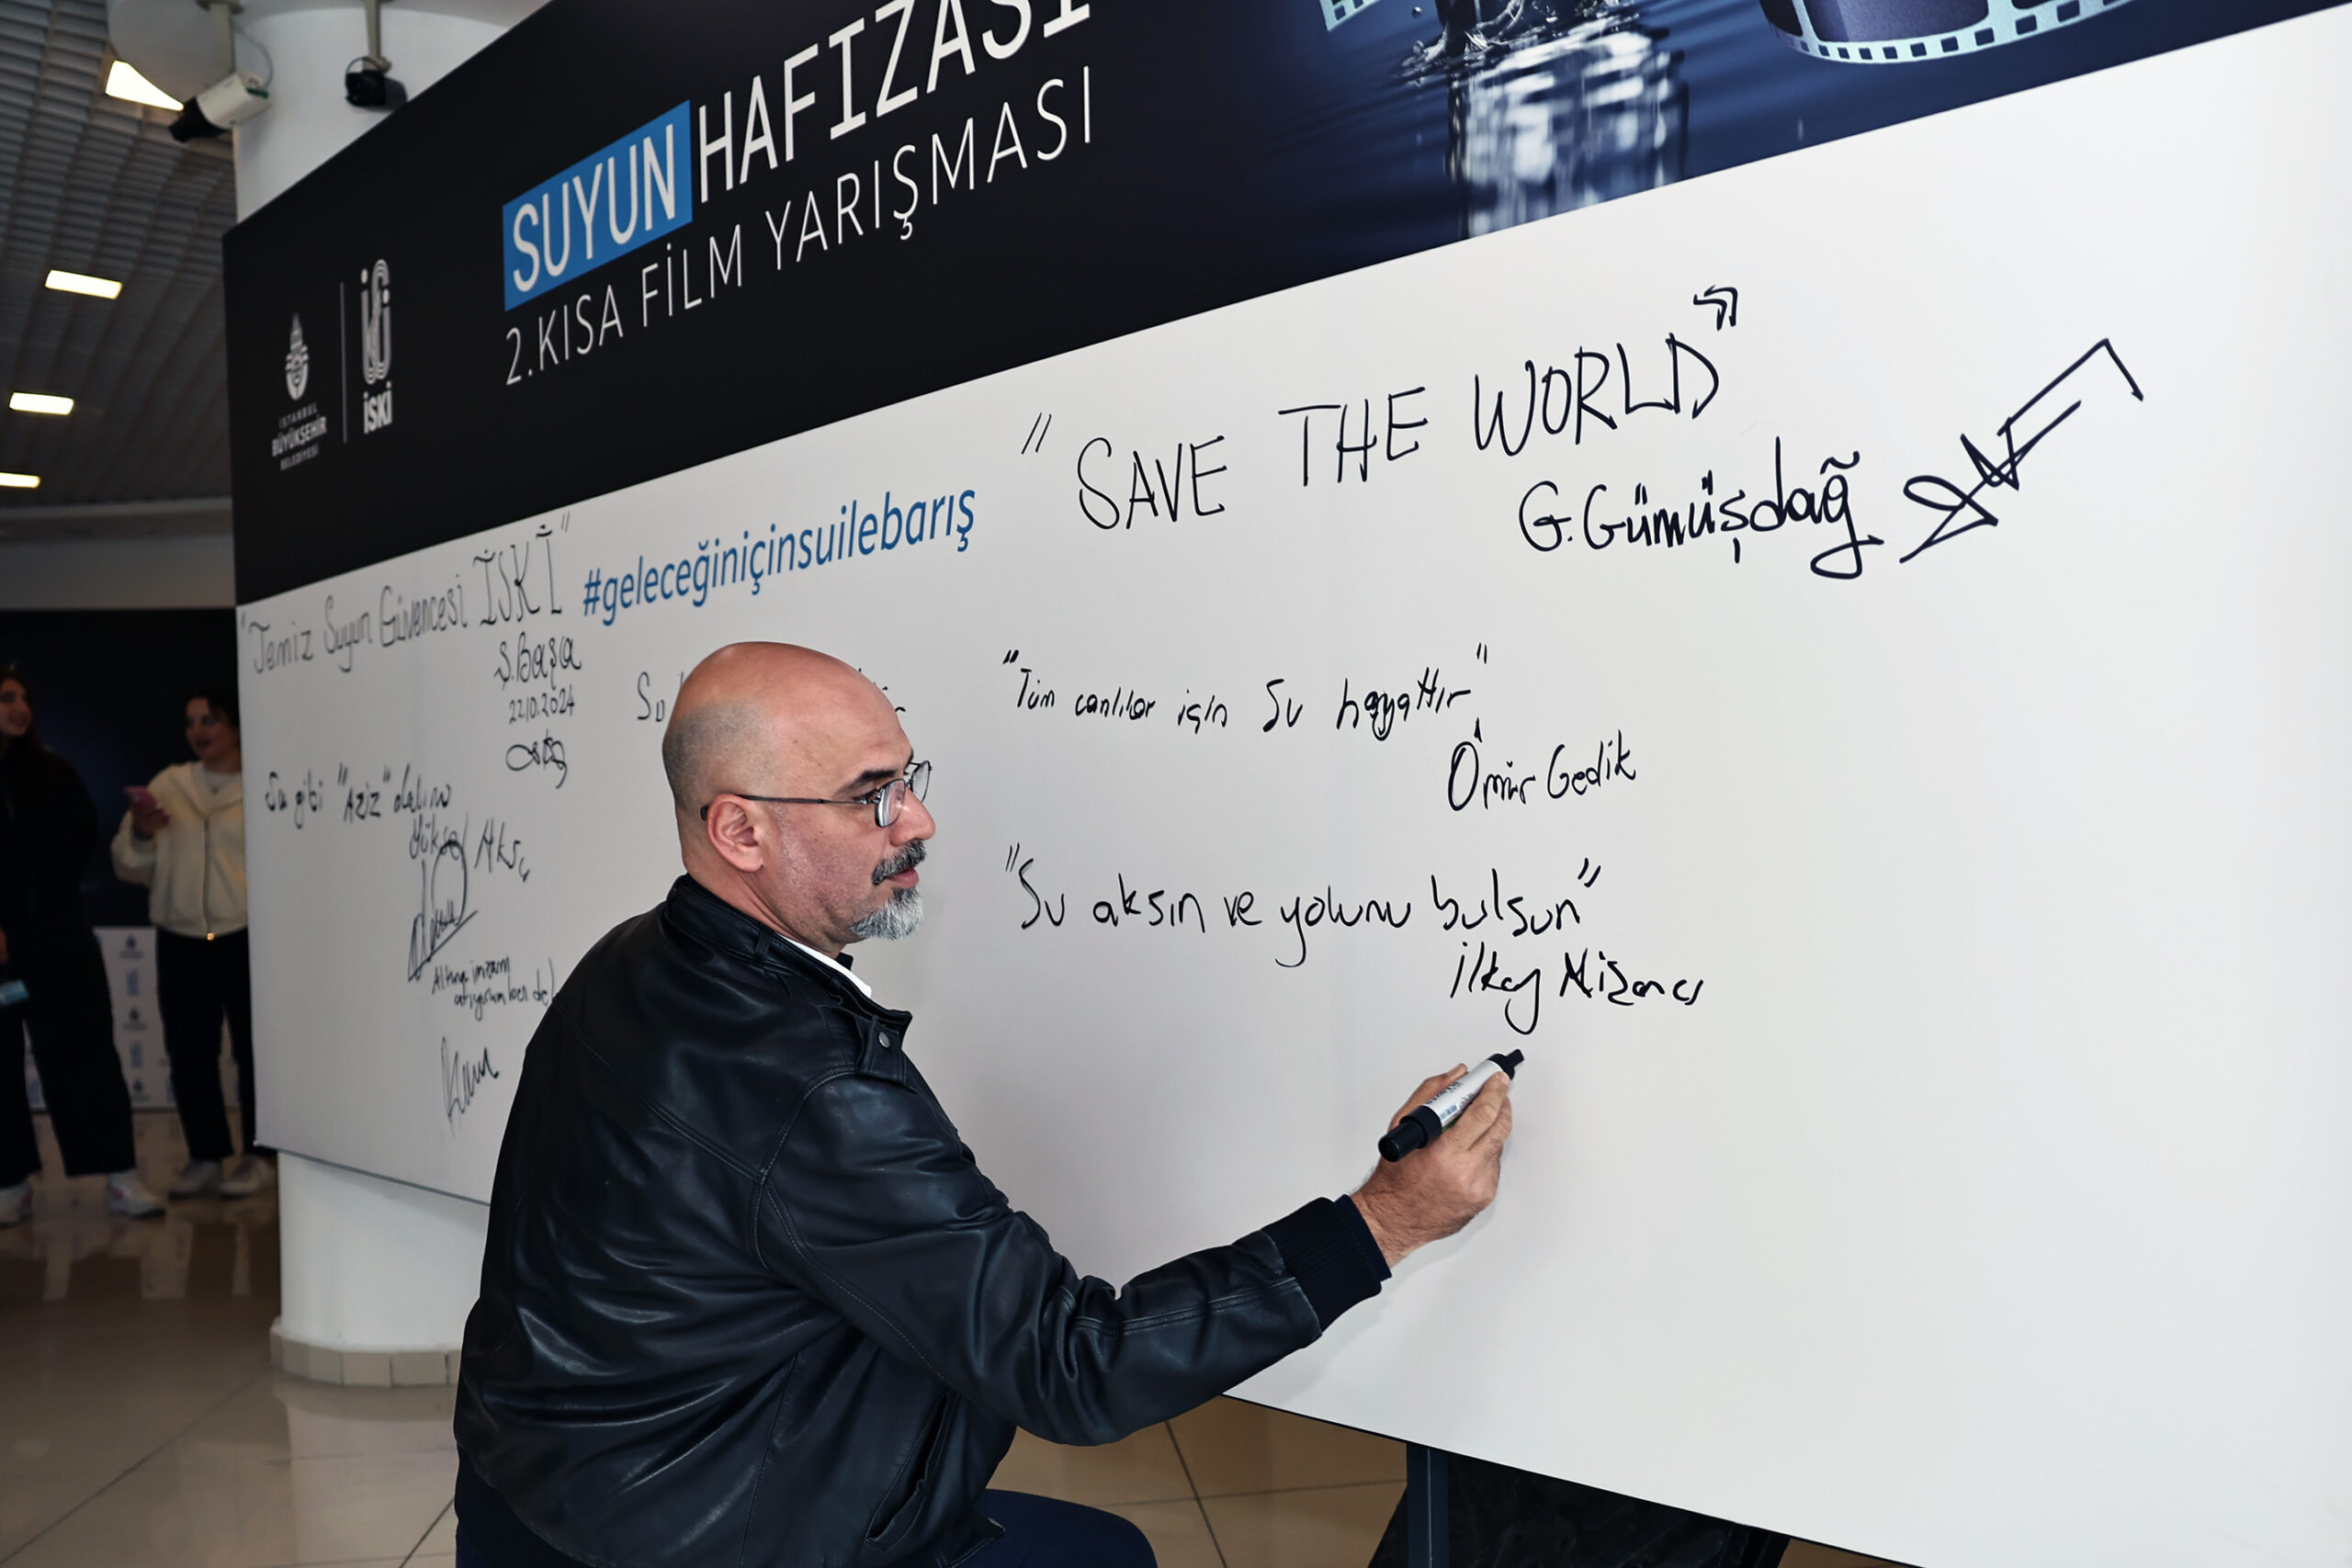 SUYUN HAFIZASI
2.KISA FİLM YARIŞMASI
İSTANBUL
BÜYÜKŞEHİR
BELEDİYESİ
İSKİ
#geleceğiniçinsuilebarış
"Temiz Suyun Güvencesi İSKİ"
Ş.Başa
22.10.2024
Su gibi "Aziz" olalım
Yüksel
Altına imzamı
atıyorum ben de
Su
"SAVE THE WORLD"
G.Gümüşdağ
"Tüm canlılar için Su hayattır"
Ömür Gedik
"Su aksın ve yolunu bulsun"
İlkay Nizancı